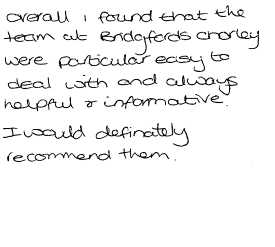 Overall I found that the
team at Bridgfords chorley
were particular easy to
deal with and always
helpful & informative.
I would definately
recommend them.